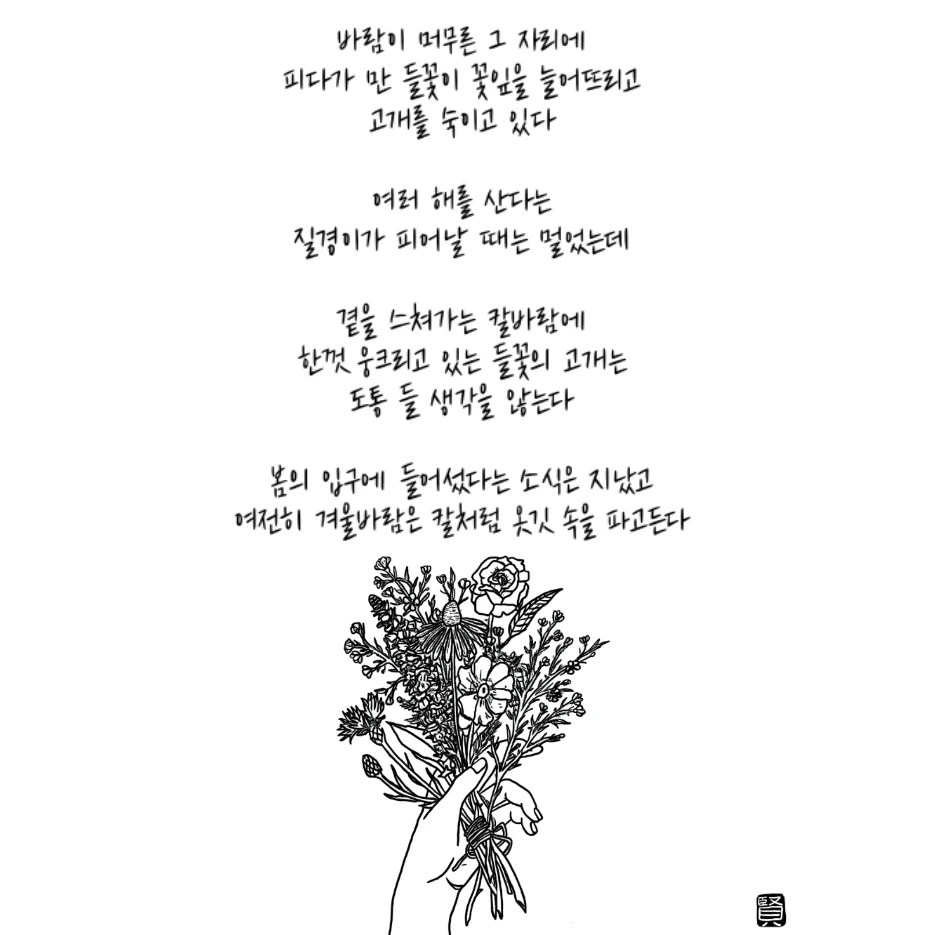 바람이 머무른 그 자리에
피다가 만 들꽃이 꽃잎을 늘어뜨리고
고개를 숙이고 있다
여러 해를 산다는
질경이가 피어날 때는 멀었는데
곁을 스쳐가는 칼바람에
한껏 웅크리고 있는 들꽃의 고개는
도통 들 생각을 않는다
봄의 입구에 들어섰다는 소식은 지났고
여전히 겨울바람은 칼처럼 옷깃 속을 파고든다
賢